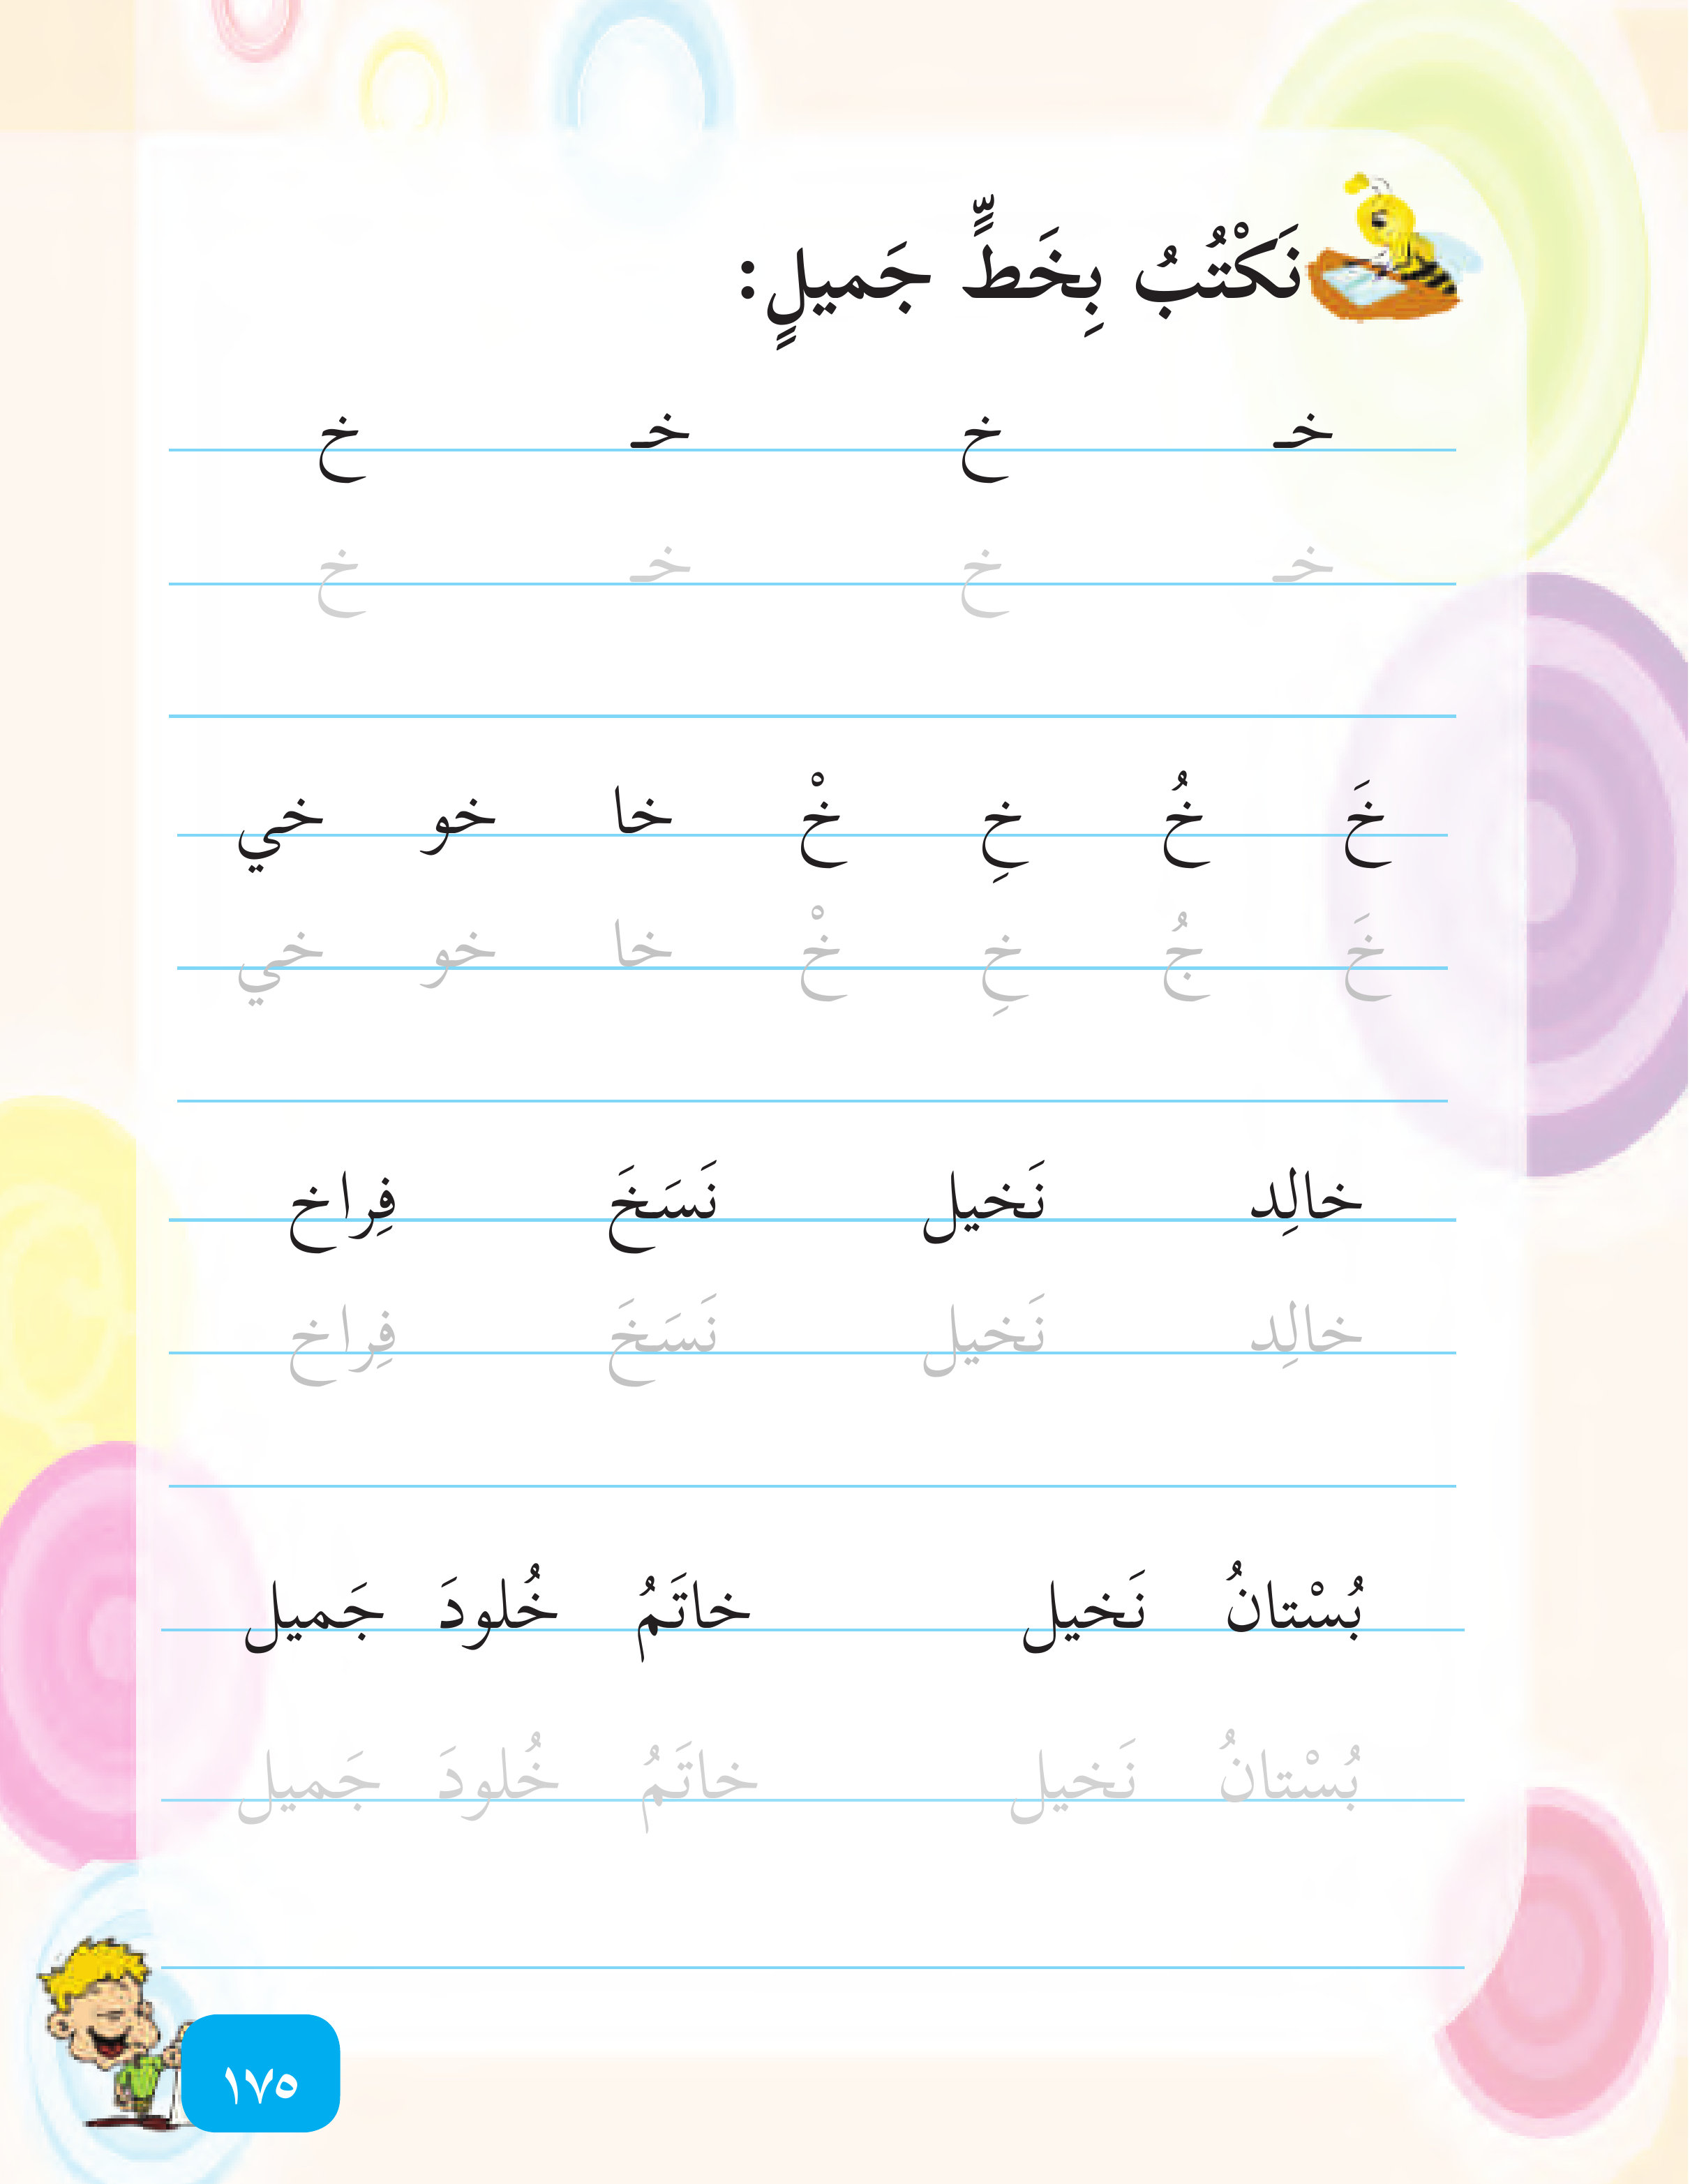 نَكْتُبُ بِخَطٍّ جَميلٍ:
خـ خ خـ خ
خـ خ خـ خ
خَ خُ خِ خْ خا خو خي
خَ جُ خِ خْ خا خو خي
خالِد نَخيل نَسَخَ فِراخ
خالِد نَخيل نَسَخَ فِراخ
بُسْتانُ نَخيل خاتَمُ خُلودَ جَميل
بُسْتانُ نَخيل خاتَمُ خُلودَ جَميل
١٧٥